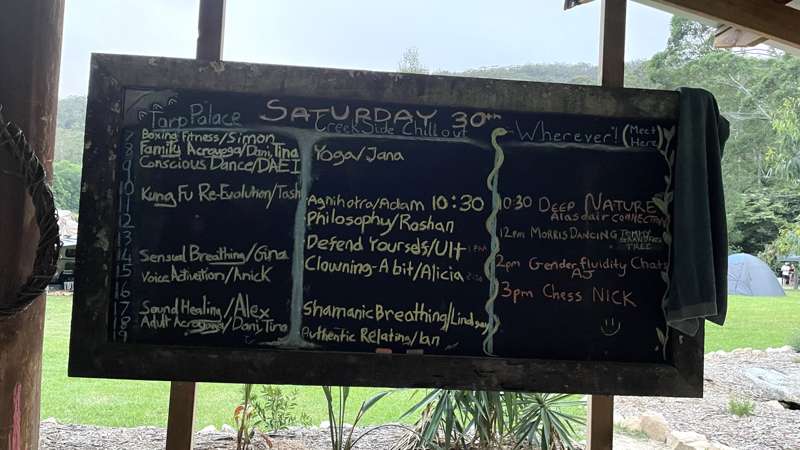 SATURDAY 30TH
Tarp Palace
7
Boxing Fitness/Simon
8
Family Acroyoga/Dani, Tina
9
Conscious Dance/DAEL
10
Kung Fu Re-Evolution/Tash
11
12
13
14
Sensual Breathing/Gina
15
Voice Activation/Anick
16
Sound Healing/Alex
Adult Acroyoga/Dani, Tina
19
Creek Side Chillout
Yoga/Jana
Agnihotra/Adam 10:30
Philosophy/Roshan
Defend Yourself/Ult 1PM
Clowning-A bit/Alicia
Shamanic Breathing/Lindsay
Authentic Relating/Ian
Wherever! (Meet Here)
10:30 DEEP NATURE CONNECTION
Alasdair
12pm MORRIS DANCING TOMMY GRANDFATHER TREE
2pm Genderfluidity Chats
AJ
3pm Chess NICK